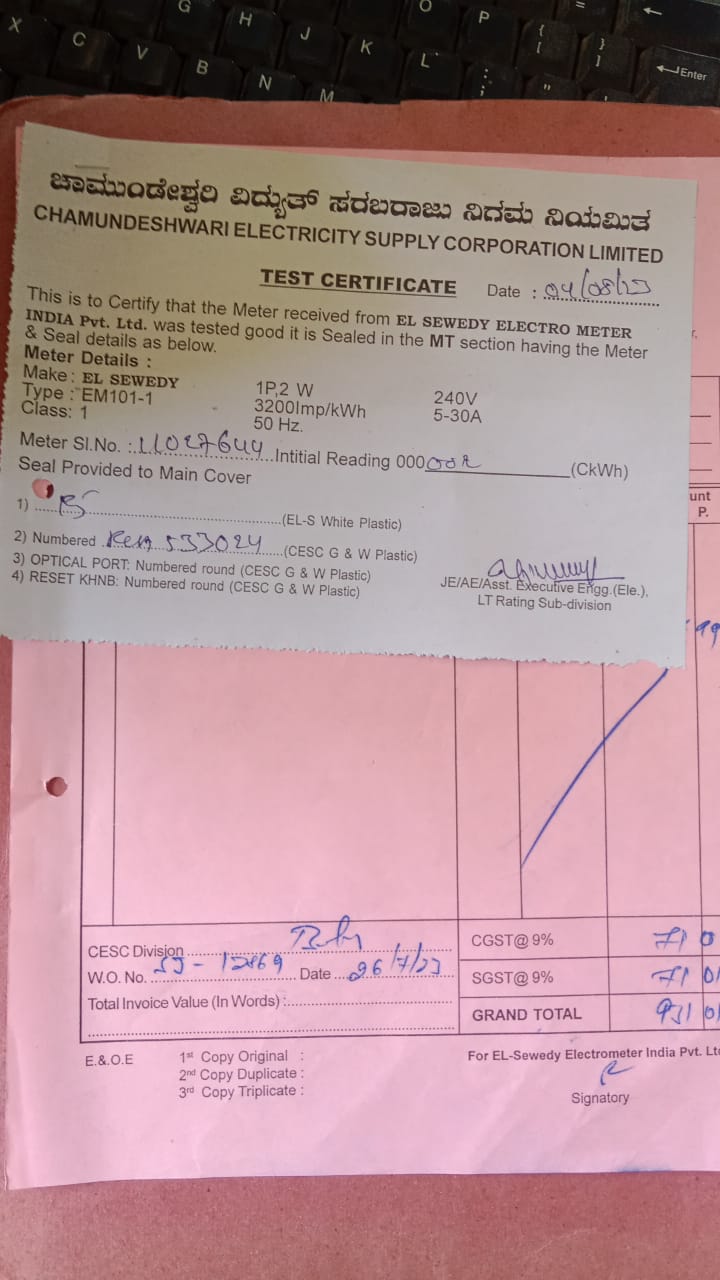 ಚಾಮುಂಡೇಶ್ವರಿ ವಿದ್ಯುತ್ ಸರಬರಾಜು ನಿಗಮ ನಿಯಮಿತ
CHAMUNDESHWARI ELECTRICITY SUPPLY CORPORATION LIMITED
TEST CERTIFICATE Date : 04/08/23
This is to Certify that the Meter received from EL SEWEDY ELECTRO METER
INDIA Pvt. Ltd. was tested good it is Sealed in the MT section having the Meter
& Seal details as below.
Meter Details :
Make : EL SEWEDY 1P,2 W 240V
Type : EM101-1 3200Imp/kWh 5-30A
Class: 1 50 Hz.
Meter Sl.No. : 11027644 Intitial Reading 000002 (CkWh)
Seal Provided to Main Cover
1) (EL-S White Plastic)
2) Numbered 533024 (CESC G & W Plastic)
3) OPTICAL PORT: Numbered round (CESC G & W Plastic)
4) RESET KHNB: Numbered round (CESC G & W Plastic)
JE/AE/Asst. Executive Engg.(Ele.),
LT Rating Sub-division
unt
P.
99
CESC Division CGST@ 9% 71 0
W.O. No. 12869 Date 26/7/23 SGST@ 9% 71 01
Total Invoice Value (In Words) : GRAND TOTAL 931 01
E.&O.E 1st Copy Original :
2nd Copy Duplicate :
3rd Copy Triplicate :
For EL-Sewedy Electrometer India Pvt. Ltd
Signatory
X C V B N M G H J K L O P
Enter